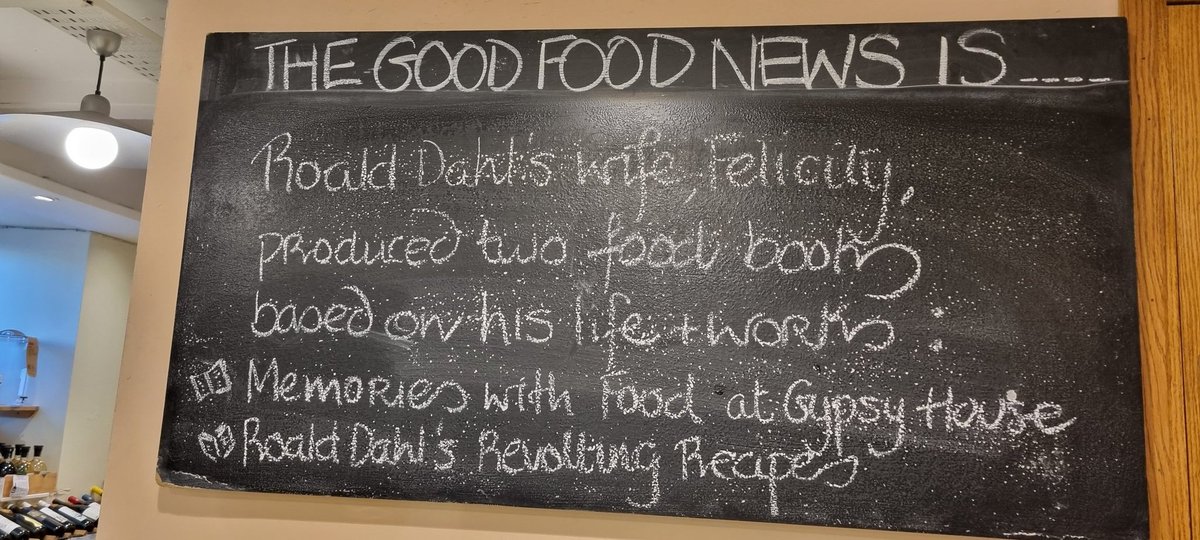 THE GOOD FOOD NEWS IS....
Roald Dahl's wife, Felicity,
produced two food books
based on his life + works :
Memories with Food at Gypsy House
Roald Dahl's Revolting Recipes